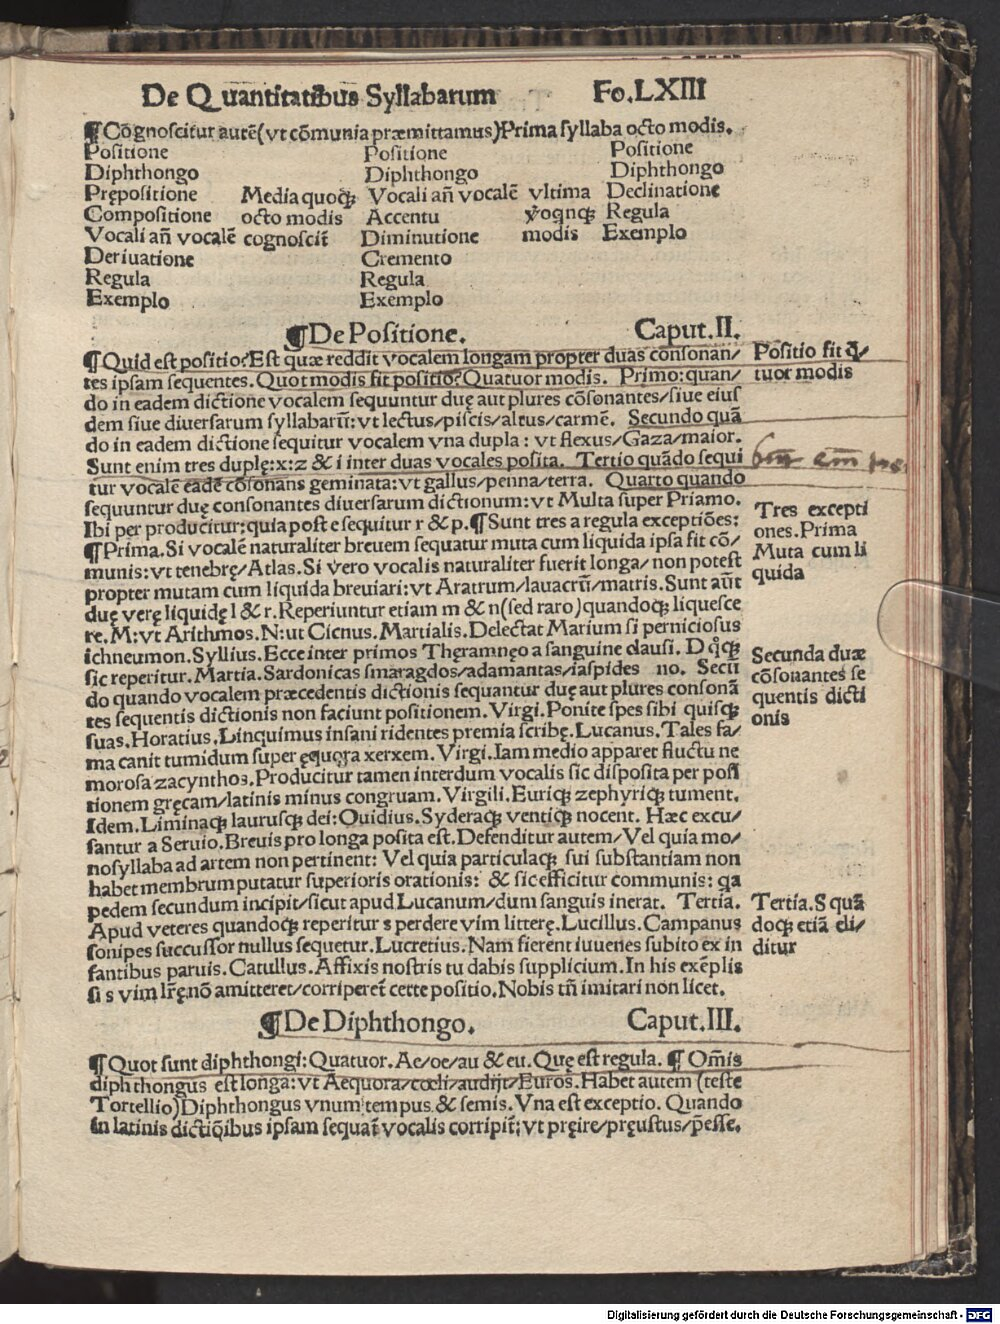 De Quantitatibus Syllabarum Fo.LXIII
¶Cōgnoscitur autē(vt cōmunia præmittamus)Prima syllaba octo modis.
Positione Positione Positione
Diphthongo Diphthongo Diphthongo
Prępositione Media quoqꝫ Vocali an̄ vocalē vltima Declinatione
Compositione octo modis Accentu Regula
Vocali an̄ vocalē cognoscit̄ Diminutione modis Exemplo
Deriuatione Cremento
Regula Regula
Exemplo Exemplo
¶De Positione. Caput.II.
¶Quid est positio?Est quæ reddit vocalem longam propter duas consonan/
tes ipsam sequentes.Quot modis fit positio?Quatuor modis. Primo:quan/
do in eadem dictione vocalem sequuntur duę aut plures cōsonantes/siue eius
dem siue diuersarum syllabarū:vt lectus/piscis/altus/carmē. Secundo quā
do in eadem dictione sequitur vocalem vna dupla : vt flexus/Gaza/maior.
Sunt enim tres duplę:x:z & i inter duas vocales posita. Tertio quādo sequi
tur vocalē eadē cōsonans geminata:vt gallus/penna/terra. Quarto quando
sequuntur duę consonantes diuersarum dictionum:vt Multa super Priamo.
Ibi per producitur:quia post e sequitur r & p.¶Sunt tres a regula exceptiōes:
¶Prima.Si vocalē naturaliter breuem sequatur muta cum liquida ipsa fit cō/
munis:vt tenebrę/Atlas.Si vero vocalis naturaliter fuerit longa/non potest
propter mutam cum liquida breuiari:vt Aratrum/lauacrū/matris.Sunt aūt
duę verę liquidę l & r.Reperiuntur etiam m & n(sed raro)quandoqꝫ liquesce
re.M:vt Arithmos.N:ut Cicnus.Martialis.Delectat Marium si perniciosus
ichneumon.Syllius.Ecce inter primos Therāmnęo a sanguine clausi.
sic reperitur.Martia.Sardonicas smaragdos/adamantas/iaspides no. Secū
do quando vocalem præcedentis dictionis sequantur duę aut plures consonā
tes sequentis dictionis non faciunt positionem.Virgi.Ponite spes sibi quisqꝫ
suas.Horatius.Linquimus insani ridentes premia scribę.Lucanus.Tales fa/
ma canit tumidum super ęquora xerxem.Virgi.Iam medio apparet fluctu ne
morosa zacynthos.Producitur tamen interdum vocalis sic disposita per posi
tionem gręcam/latinis minus congruam.Virgili.Euriqꝫ zephyriqꝫ tument.
Idem.Liminaqꝫ laurusqꝫ dei:Ouidius.Syderaqꝫ ventiqꝫ nocent. Hæc excu/
santur a Seruio.Breuis pro longa posita est.Defenditur autem/Vel quia mo/
nosyllaba ad artem non pertinent: Vel quia particulaqꝫ sui substantiam non
habet membrum putatur superioris orationis: & sic efficitur communis: qa
pedem secundum incipit/sicut apud Lucanum/dum sanguis inerat. Tertia.
Apud veteres quandoqꝫ reperitur s perdere vim litterę.Lucillus.Campanus
sonipes succussor nullus sequetur.Lucretius.Nam fierent iuuenes subito ex in
fantibus paruis.Catullus.Affixis nostris tu dabis supplicium.In his exēplis
si s vim lr̄ę.nō amitteret/corriperet̄ cette positio.Nobis tn̄ imitari non licet.
¶De Diphthongo. Caput.III.
¶Quot sunt diphthongi:Quatuor.Ae/oe/au & eu.Quę est regula.¶ Om̄is
diphthongus est longa:vt Aequora/cœli/audijt/Euros.Habet autem (teste
Tortellio)Diphthongus vnum tempus & semis.Vna est exceptio. Quando
in latinis dictiōibus ipsam sequat̄ vocalis corripit̄:vt pręire/pręustus/p̄esse.
Positio fit q̄/
tuor modis
Tres excepti
ones.Prima
Muta cum li
quida
Secunda duæ
cōsonantes se
quentis dicti
onis
Tertia.S quā
doqꝫ etiā eli/
ditur
Digitalisierung gefördert durch die Deutsche Forschungsgemeinschaft - DFG